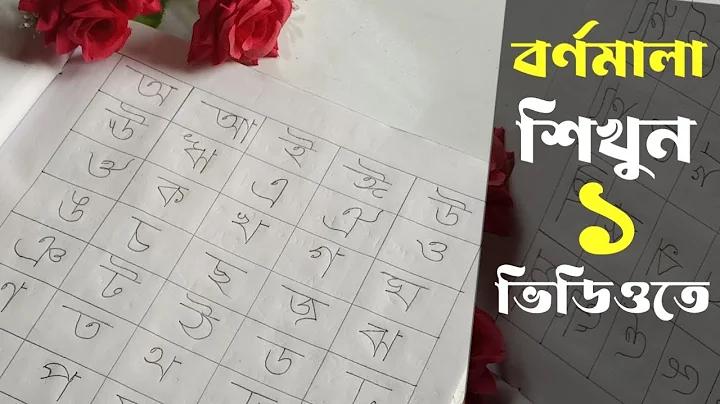 অ আ ই ঈ উ
ঊ ঋ এ ঐ ও
ঔ ক খ গ ঘ
ঙ চ ছ জ ঝ
ঞ ট ঠ ড
ণ ত থ
প
বর্ণমালা
শিখুন
১
ভিডিওতে